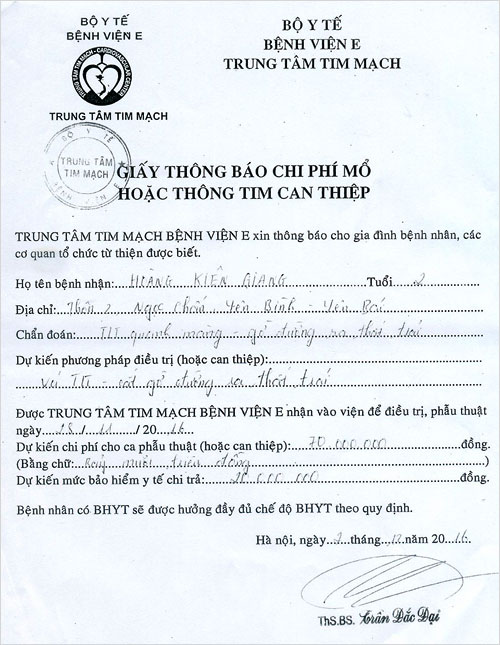 BỘ Y TẾ
BỆNH VIỆN E
TRUNG TÂM TIM MẠCH - CARDIOVASCULAR CENTER
TRUNG TÂM TIM MẠCH
BỘ Y TẾ
BỆNH VIỆN E
TRUNG TÂM TIM MẠCH
BỘ Y TẾ
TRUNG TÂM
TIM MẠCH
BỆNH VIỆN E
GIẤY THÔNG BÁO CHI PHÍ MỔ
HOẶC THÔNG TIM CAN THIỆP
TRUNG TÂM TIM MẠCH BỆNH VIỆN E xin thông báo cho gia đình bệnh nhân, các
cơ quan tổ chức từ thiện được biết.
Họ tên bệnh nhân: HOÀNG KIÊN GIANG Tuổi 2
Địa chỉ: Thôn 2 Ngọc Chấn Yên Bình - Yên Bái
Chẩn đoán: TLT quanh màng - đường ra thất trái
Dự kiến phương pháp điều trị (hoặc can thiệp):
Vá TLT - cắt gờ đường ra thất trái
Được TRUNG TÂM TIM MẠCH BỆNH VIỆN E nhận vào viện để điều trị, phẫu thuật
ngày 28 / 11 / 20 16
Dự kiến chi phí cho ca phẫu thuật (hoặc can thiệp): 70.000.000 đồng.
(Bằng chữ: Bảy mươi triệu đồng )
Dự kiến mức bảo hiểm y tế chi trả: 20.000.000 đồng.
Bệnh nhân có BHYT sẽ được hưởng đầy đủ chế độ BHYT theo quy định.
Hà nội, ngày 2 tháng 12 năm 20 16
ThS.BS. Trần Đắc Đại